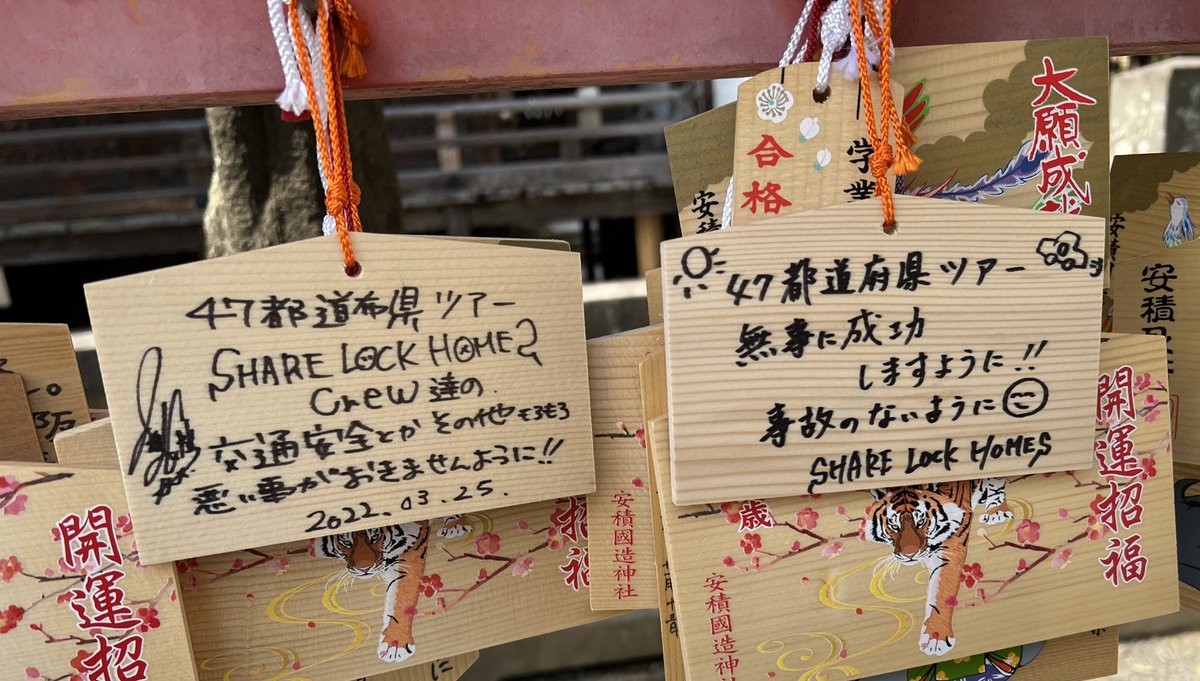 47都道布県ツアー
SHARE LOCK HOMES
Crew達の
交通安全とかその他もろもろ
悪い事がおきませんように!!
2022.03.25.
47都道府県ツアー
無事に成功
しますように!!
事故のないように
SHARE LOCK HOMES
合格
学業
大願成就
安積
安積
開運招福
開運招
招福
歳
安積國造神社
安積國造神社